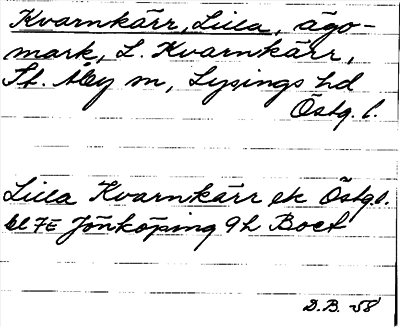 Kvarnkärr, Lilla, ägo-
mark, L. Kvarnkärr,
St. Åby sn, Lysings hd
Östg. l.
Lilla Kvarnkärr ek Östgl.
bl 7E Jönköping 9h Boet
D.B. -58